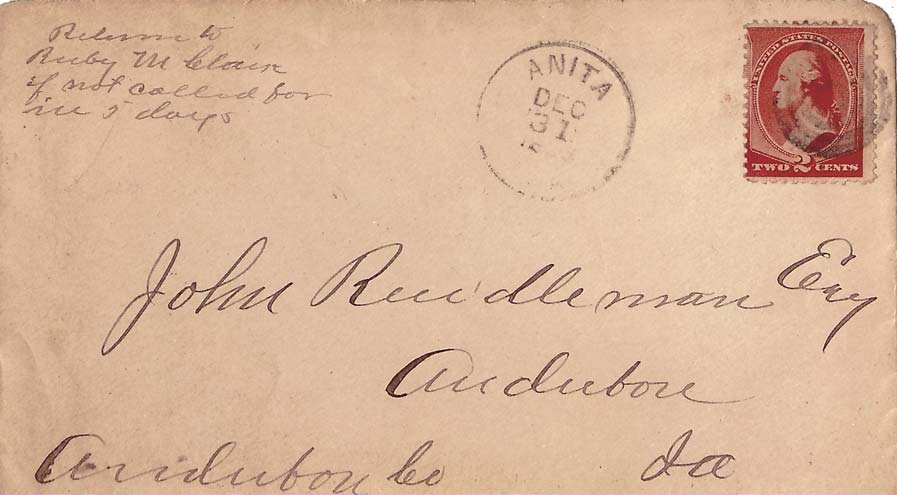 Return to
Ruby M Clair
if not called for
in 5 days
ANITA
DEC
31
UNITED STATES POSTAGE
TWO 2 CENTS
John Rendleman Esq
Audubon
Audubon Co Ia